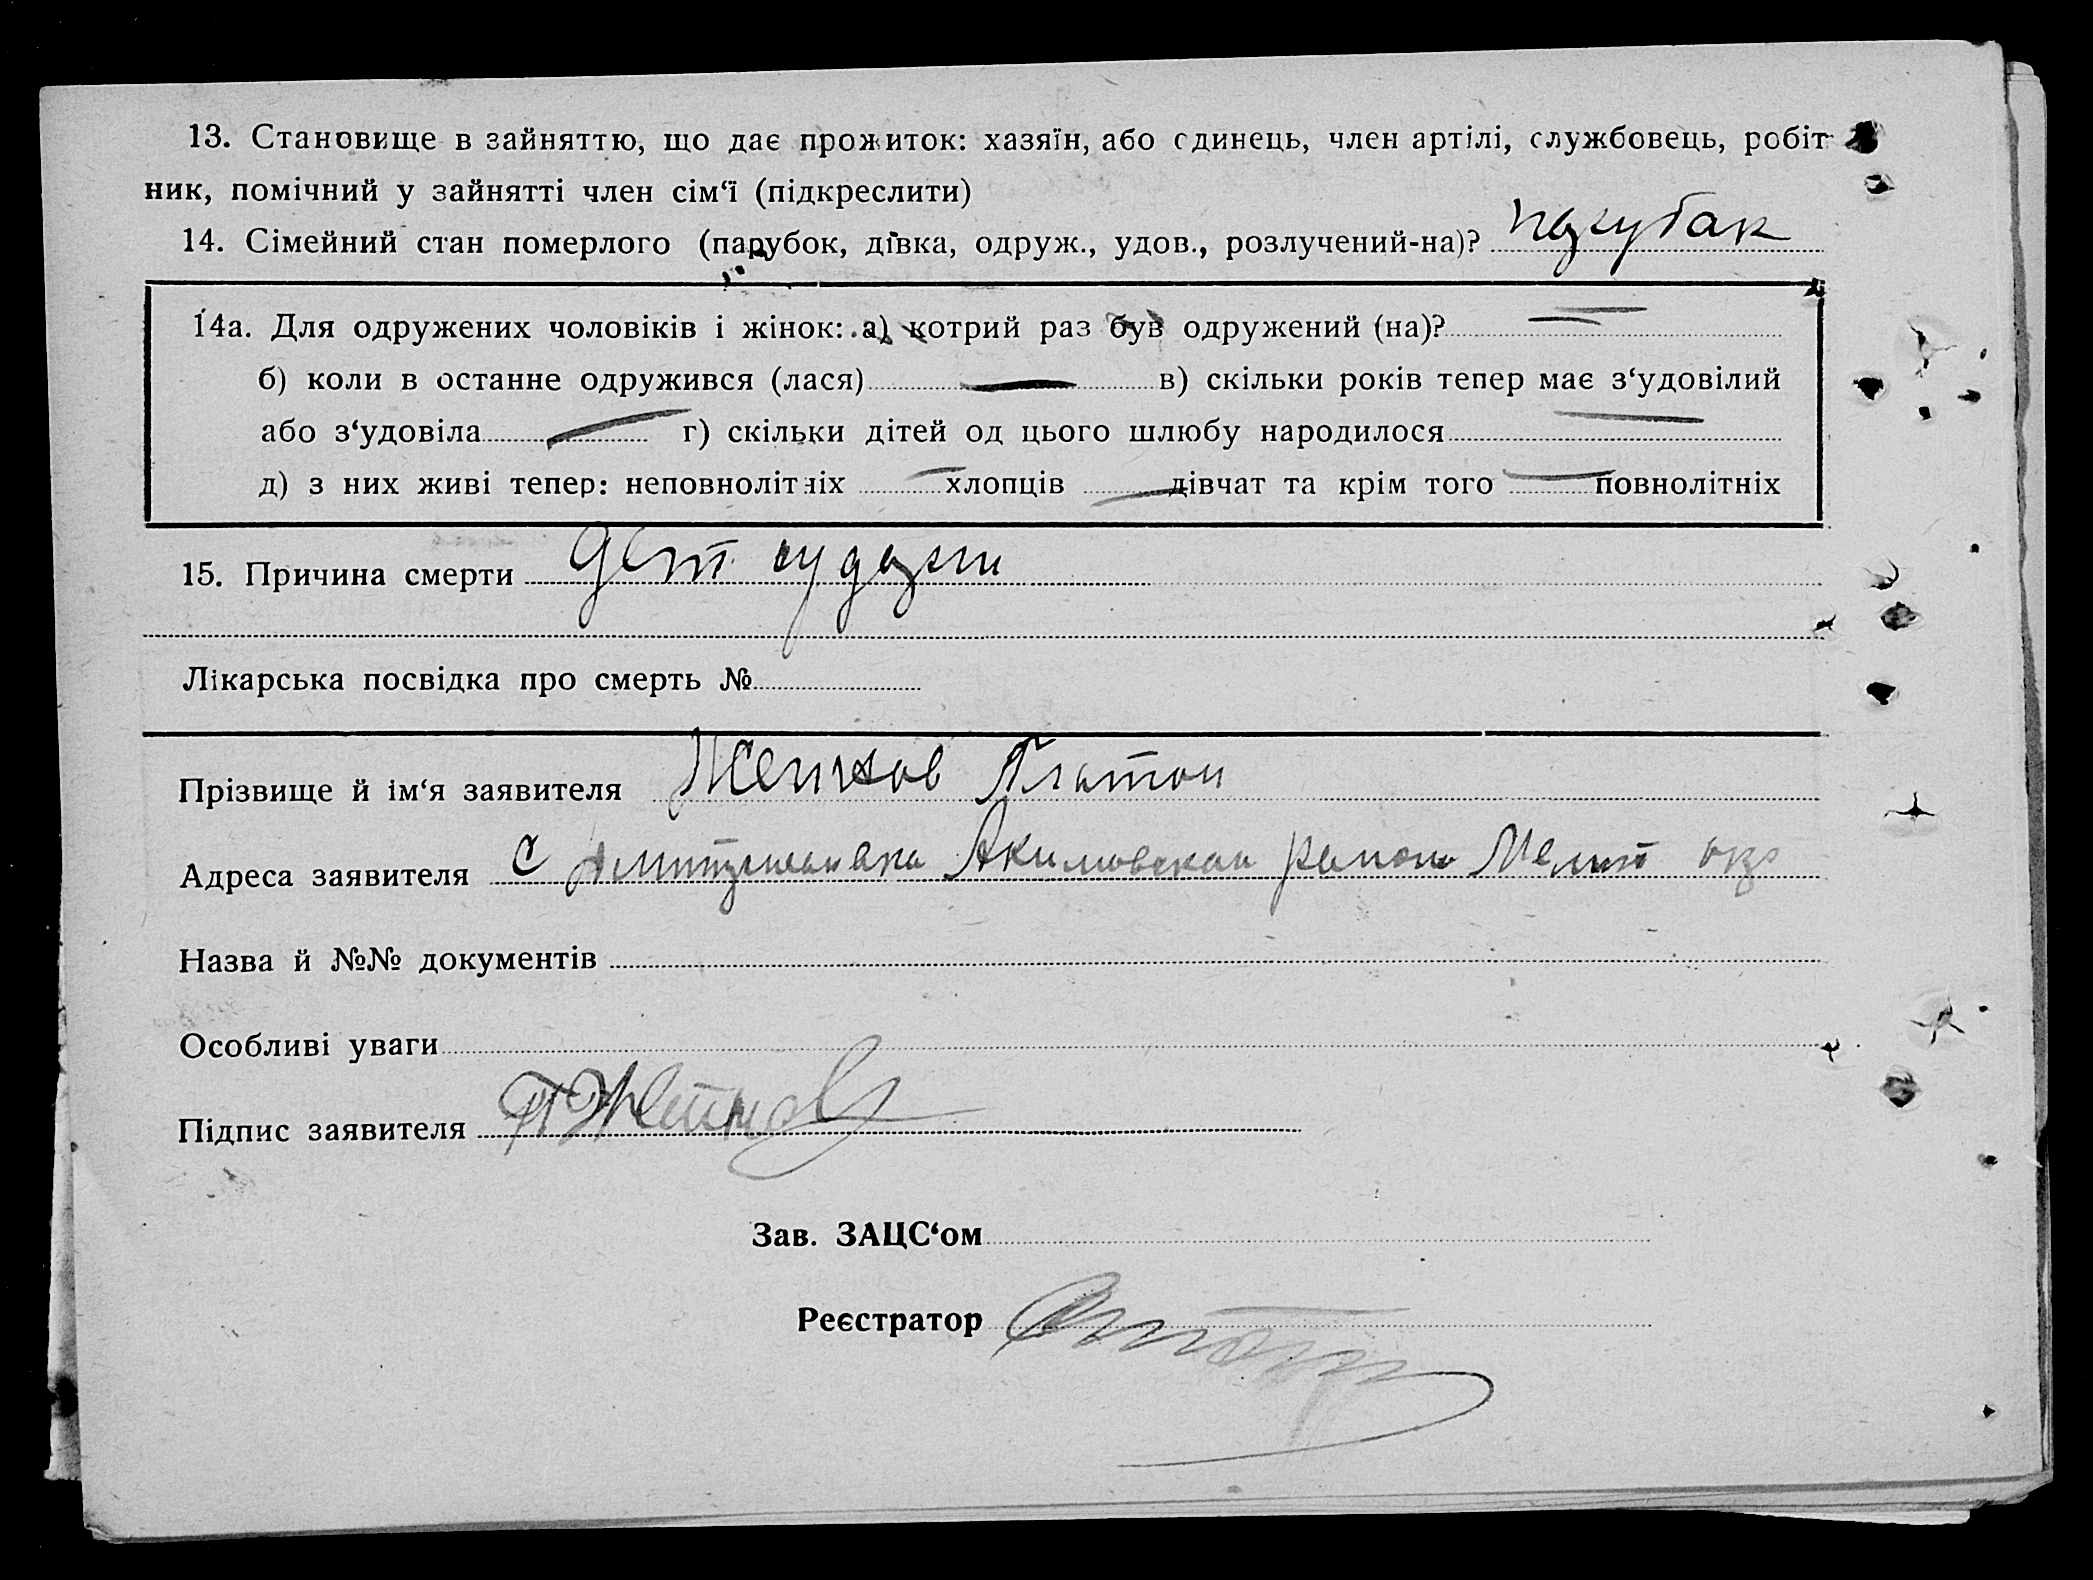 13. Становище в зайняттю, що дає прожиток: хазяїн, або єдинець, член артілі, службовець, робіт-
ник, помічний у зайнятті член сім‘ї (підкреслити)
14. Сімейний стан померлого (парубок, дівка, одруж., удов., розлучений-на)? парубак
14а. Для одружених чоловіків і жінок: а) котрий раз був одружений (на)?
б) коли в останнє одружився (лася) — в) скільки років тепер має з‘удовілий
або з‘удовіла — г) скільки дітей од цього шлюбу народилося —
д) з них живі тепер: неповнолітніх — хлопців — дівчат та крім того — повнолітніх
15. Причина смерти
Лікарська посвідка про смерть №
Прізвище й ім‘я заявителя Платон
Адреса заявителя с Акимовского Мелит окр
Назва й №№ документів
Особливі уваги
Підпис заявителя
Зав. ЗАЦС‘ом
Реєстратор